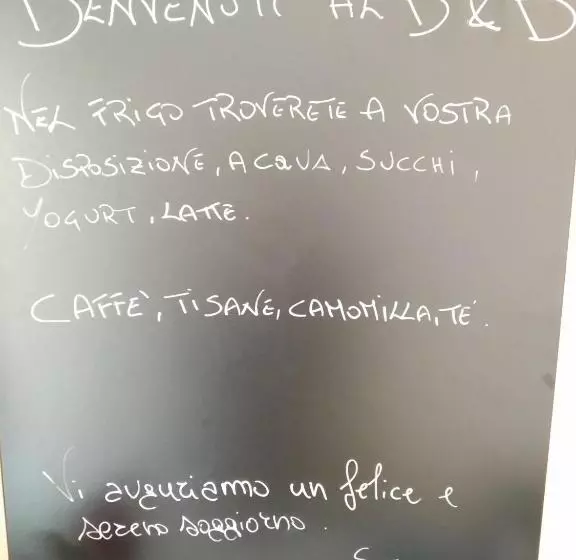 BENVENUTI AL D & D
NEL FRIGO TROVERETE A VOSTRA
DISPOSIZIONE, ACQUA, SUCCHI,
YOGURT, LATTE.
CAFFÈ, TISANE, CAMOMILLA, TÈ.
Vi auguriamo un felice e
sereno soggiorno.